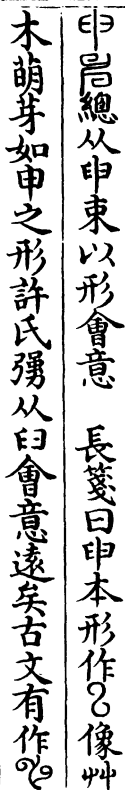 申𢑚總从申束以形會意　長箋曰申本形作像艸
木萌芽如申之形許氏彊从臼會意遠矣古文有作